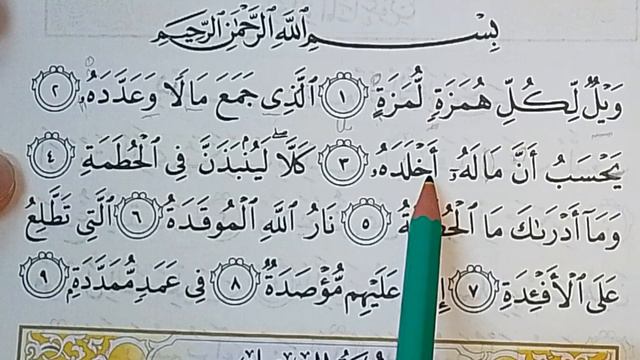 بِسْمِ ٱللَّهِ ٱلرَّحْمَٰنِ ٱلرَّحِيمِ
وَيْلٌ لِّكُلِّ هُمَزَةٍ لُّمَزَةٍ ١ ٱلَّذِى جَمَعَ مَالًا وَعَدَّدَهُۥ ٢
يَحْسَبُ أَنَّ مَالَهُۥٓ أَخْلَدَهُۥ ٣ كَلَّا ۖ لَيُنۢبَذَنَّ فِى ٱلْحُطَمَةِ ٤
وَمَآ أَدْرَىٰكَ مَا ٥ نَارُ ٱللَّهِ ٱلْمُوقَدَةُ ٦ ٱلَّتِى تَطَّلِعُ
عَلَى ٱلْأَفْـِٔدَةِ ٧ عَلَيْهِم مُّؤْصَدَةٌ ٨ فِى عَمَدٍ مُّمَدَّدَةٍۭ ٩